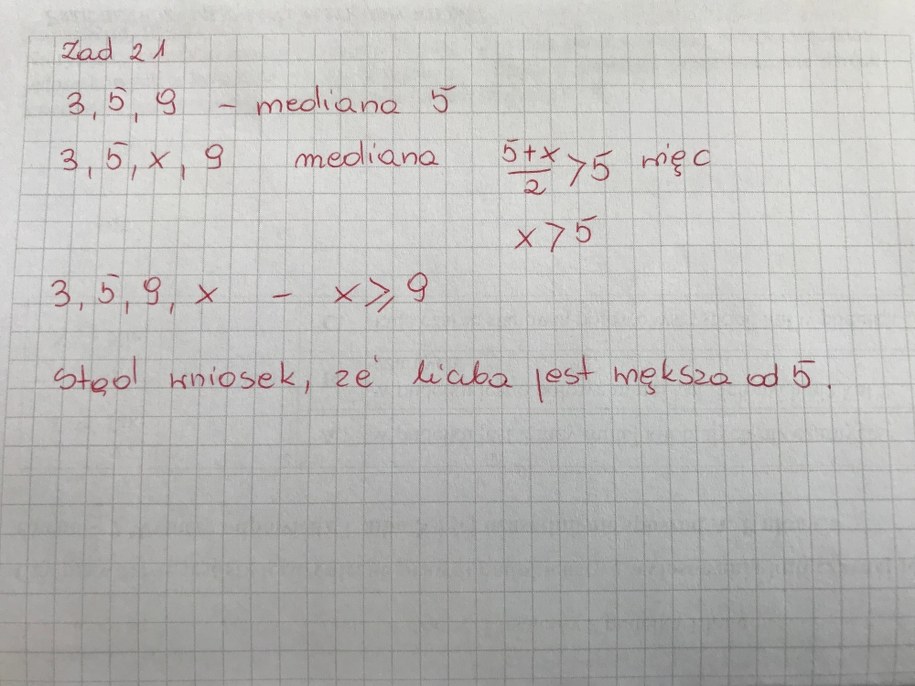 Zad 21
3, 5, 9 - mediana 5
3, 5, x, 9 mediana (5+x)/2 > 5 więc
x > 5
3, 5, 9, x - x ⩾ 9
Stąd wniosek, że liczba jest większa od 5.